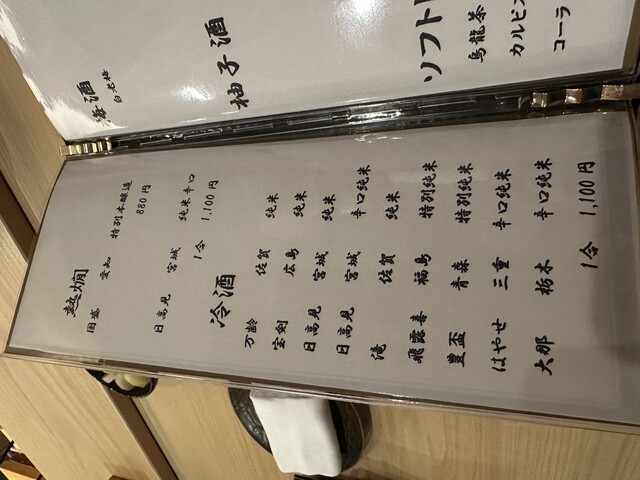 熱燗
国盛 愛知 特別本醸造
880円
日高見 宮城 純米辛口
1合 1,100円
冷酒
万齢 佐賀 純米
宝剣 広島 純米
日高見 宮城 純米
日高見 宮城 辛口純米
滝 佐賀 純米
飛露喜 福島 特別純米
豊盃 青森 特別純米
はやせ 三重 辛口純米
大那 栃木 辛口純米
1合 1,100円
梅酒
白老梅
柚子酒
ソフト
烏龍茶
カルピ
コーラ